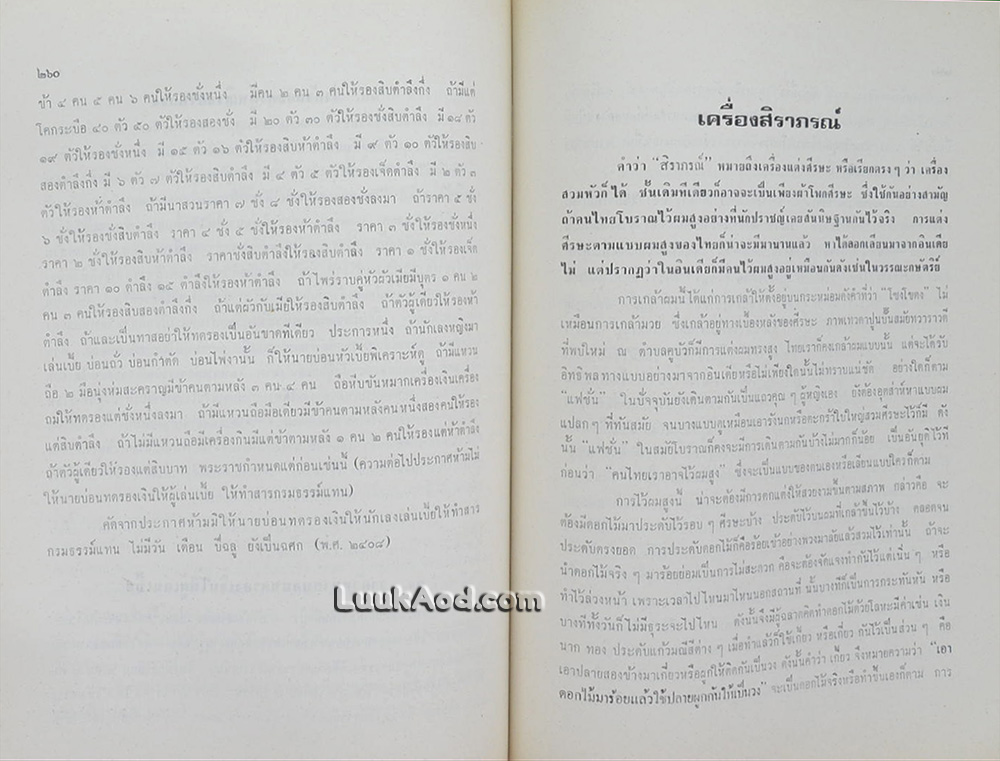 ๒๖๐
ข้า ๔ คน ๕ คน ๖ คนให้รองชั่งหนึ่ง มีคน ๒ คน ๓ คนให้รองสิบตำลึงกึ่ง ถ้ามีแต่
โคกระบือ ๔๐ ตัว ๕๐ ตัวให้รองสองชั่ง มี ๒๐ ตัว ๓๐ ตัวให้รองชั่งสิบตำลึง มี ๑๘ ตัว
๑๙ ตัวให้รองชั่งหนึ่ง มี ๑๕ ตัว ๑๖ ตัวให้รองสิบห้าตำลึง มี ๙ ตัว ๑๐ ตัวให้รองสิบ
สองตำลึงกึ่ง มี ๖ ตัว ๗ ตัวให้รองสิบตำลึง มี ๔ ตัว ๕ ตัวให้รองเจ็ดตำลึง มี ๒ ตัว ๓
ตัวให้รองห้าตำลึง ถ้ามีนาสวนราคา ๗ ชั่ง ๘ ชั่งให้รองสองชั่งลงมา ถ้าราคา ๕ ชั่ง
๖ ชั่งให้รองชั่งสิบตำลึง ราคา ๔ ชั่ง ๕ ชั่งให้รองห้าตำลึง ราคา ๓ ชั่งให้รองชั่งหนึ่ง
ราคา ๒ ชั่งให้รองสิบห้าตำลึง ราคาชั่งสิบตำลึงให้รองสิบตำลึง ราคา ๑ ชั่งให้รองเจ็ด
ตำลึง ราคา ๑๐ ตำลึง ๑๕ ตำลึงให้รองห้าตำลึง ถ้าไพร่ราบคู่หัวผัวเมียมีบุตร ๑ คน ๒
คน ๓ คนให้รองสิบสองตำลึงกึ่ง ถ้าแต่ผัวกับเมียให้รองสิบตำลึง ถ้าตัวผู้เดียวให้รองห้า
ตำลึง ถ้าและเป็นทาสอย่าให้ทดรองเป็นอันขาดทีเดียว ประการหนึ่ง ถ้านักเลงหญิงมา
เล่นเบี้ย บ่อนถั่ว บ่อนกำตัด บ่อนไพ่งานั้น ก็ให้นายบ่อนหัวเบี้ยพิเคราะห์ดู ถ้ามีแหวน
ถือ ๒ มือนุ่งห่มสะคราญมีข้าคนตามหลัง ๓ คน ๔ คน ถือหีบขันหมากเครื่องเงินเครื่อง
ถมให้ทดรองแต่ชั่งหนึ่งลงมา ถ้ามีแหวนถือมือเดียวมีข้าคนตามหลังคนหนึ่งสองคนให้รอง
แต่สิบตำลึง ถ้าไม่มีแหวนถือมีเครื่องกินมีแต่ข้าตามหลัง ๑ คน ๒ คนให้รองแต่ห้าตำลึง
ถ้าตัวผู้เดียวให้รองแต่สิบบาท พระราชกำหนดแต่ก่อนเช่นนี้ (ความต่อไปประกาศห้ามไม่
ให้นายบ่อนทดรองเงินให้ผู้เล่นเบี้ย ให้ทำสารกรมธรรม์แทน)
คัดจากประกาศห้ามมิให้นายบ่อนทดรองเงินให้นักเลงเล่นเบี้ยให้ทำสาร
กรมธรรม์แทน ไม่มีวัน เดือน ปีฉลู ยังเป็นฉศก (พ.ศ. ๒๔๐๘)
LuukAod.com
เครื่องสิราภรณ์
คำว่า "สิราภรณ์" หมายถึงเครื่องแต่งศีรษะ หรือเรียกตรง ๆ ว่า เครื่อง
สวมหัวก็ได้ ชั้นเดิมทีเดียวก็อาจจะเป็นเพียงผ้าโพกศีรษะ ซึ่งใช้กันอย่างสามัญ
ถ้าคนไทยโบราณไว้ผมสูงอย่างที่นักปราชญ์เคยสันนิษฐานกันไว้จริง การแต่ง
ศีรษะตามแบบผมสูงของไทยก็น่าจะมีมานานแล้ว หาได้ลอกเลียนมาจากอินเดีย
ไม่ แต่ปรากฏว่าในอินเดียก็มีคนไว้ผมสูงอยู่เหมือนกันดังเช่นในวรรณะกษัตริย์
การเกล้าผมนี้ได้แก่การเกล้าให้ตั้งอยู่บนกระหม่อมดังคำที่ว่า "โซงโขดง" ไม่
เหมือนการเกล้ามวย ซึ่งเกล้าอยู่ทางเบื้องหลังของศีรษะ ภาพเทวดาปูนปั้นสมัยทวาราวดี
ที่พบใหม่ ณ ตำบลคูบัวก็มีการแต่งผมทรงสูง ไทยเราก็คงเกล้าผมแบบนั้น แต่จะได้รับ
อิทธิพลทางแบบอย่างมาจากอินเดียหรือไม่เพียงใดนั้นไม่ทราบแน่ชัด อย่างใดก็ตาม
"แฟชั่น" ในปัจจุบันยังเดินตามกันเป็นแถวคุณ ๆ ผู้หญิงเอง ยังต้องอุตส่าห์หาแบบผม
แปลก ๆ ที่ทันสมัย จนบางแบบดูเหมือนเอารังนกหรือตะกร้าใบใหญ่สวมศีรษะไว้ก็มี ดัง
นั้น "แฟชั่น" ในสมัยโบราณก็คงจะมีการเดินตามกันบ้างไม่มากก็น้อย เป็นอันยุติไว้ที
ก่อนว่า "คนไทยเราอาจไว้ผมสูง" ซึ่งจะเป็นแบบของตนเองหรือเลียนแบบใครก็ตาม
การไว้ผมสูงนี้ น่าจะต้องมีการตกแต่งให้สวยงามขึ้นตามสภาพ กล่าวคือ จะ
ต้องมีดอกไม้มาประดับไว้รอบ ๆ ศีรษะบ้าง ประดับไว้บนผมที่เกล้าขึ้นไว้บ้าง ตลอดจน
ประดับตรงยอด การประดับดอกไม้ก็คือร้อยเข้าอย่างพวงมาลัยแล้วสวมไว้เท่านั้น ถ้าจะ
นำดอกไม้จริง ๆ มาร้อยย่อมเป็นการไม่สะดวก คือจะต้องจัดแจงทำกันไว้แต่เนิ่น ๆ หรือ
ทำไว้ล่วงหน้า เพราะเวลาไปไหนมาไหนนอกสถานที่ นั้นบางทีก็เป็นการกระทันหัน หรือ
บางทีทั้งวันก็ไม่มีธุระจะไปไหน ดังนั้นจึงมีผู้ฉลาดคิดทำดอกไม้ด้วยโลหะมีค่าเช่น เงิน
นาก ทอง ประดับแก้วมณีสีต่าง ๆ เมื่อทำแล้วก็ใช้เกี้ยว หรือเกี่ยว กันไว้เป็นส่วน ๆ คือ
เอาปลายสองข้างมาเกี่ยวหรือผูกให้ติดกันเป็นวง ดังนั้นคำว่า เกี้ยว จึงหมายความว่า "เอา
ดอกไม้มาร้อยแล้วใช้ปลายผูกกันให้เป็นวง" จะเป็นดอกไม้จริงหรือทำขึ้นเองก็ตาม การ